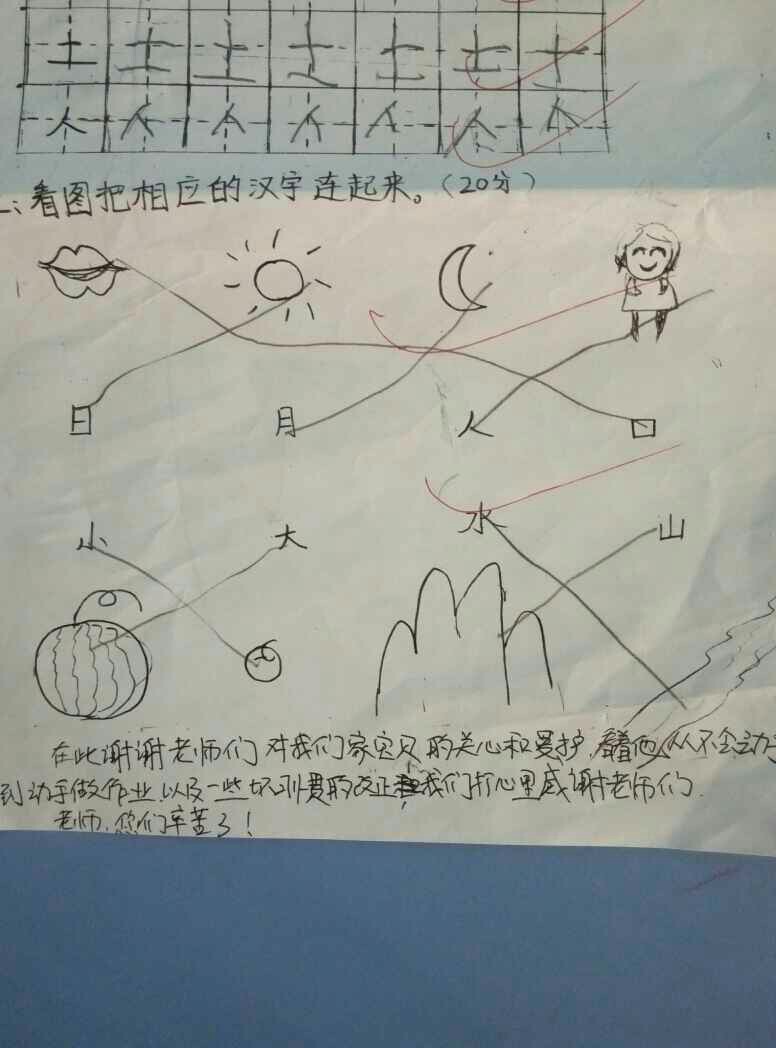 土 土 土 土 土 土 土
人 人 人 人 人 人 人
二、看图把相应的汉字连起来。（20分）
日 月 人 口
小 大 水 山
在此谢谢老师们对我们家宝贝的关心和爱护，看着他从不会动手
到动手做作业，以及一些坏习惯的改正，我们打心里感谢老师们.
老师，您们辛苦了！